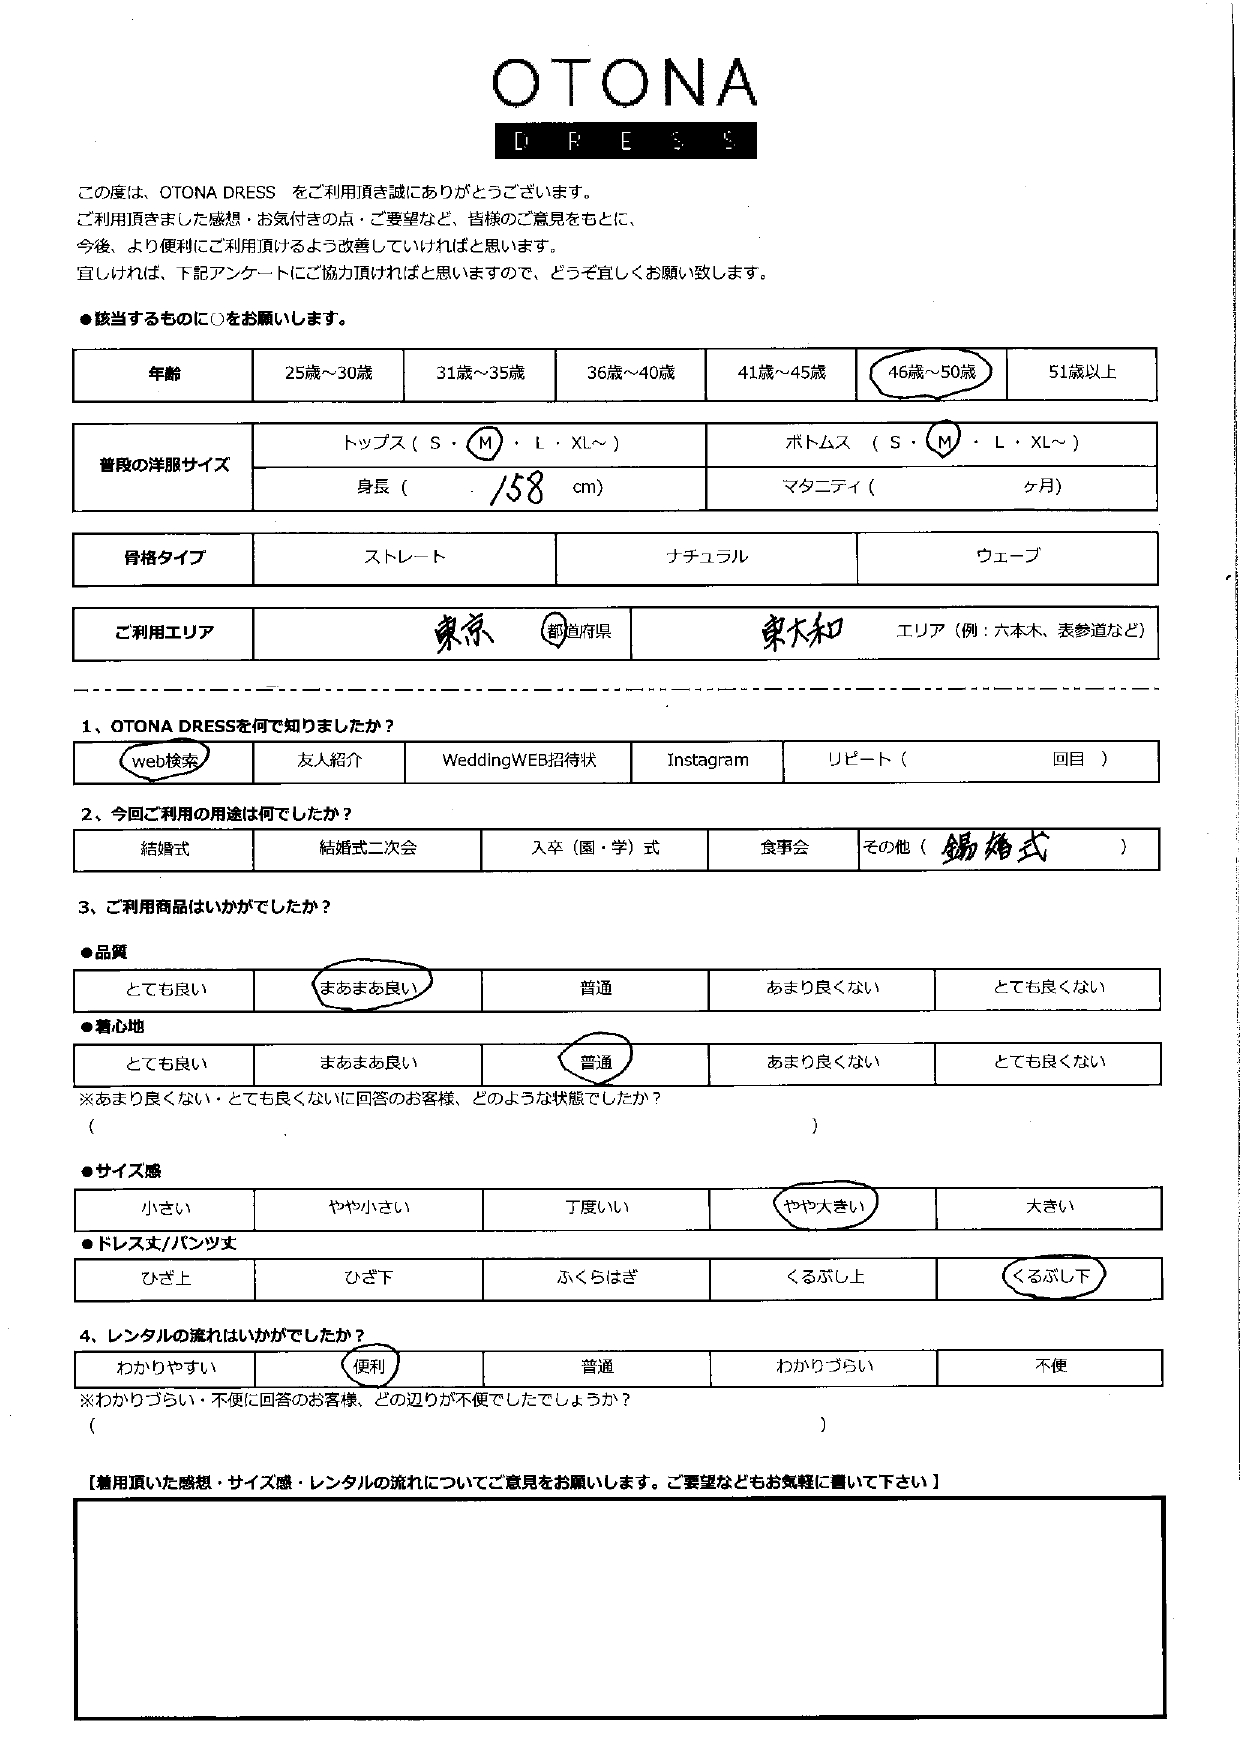 OTONA
DRESS
この度は、OTONA DRESS　をご利用頂き誠にありがとうございます。
ご利用頂きました感想・お気付きの点・ご要望など、皆様のご意見をもとに、
今後、より便利にご利用頂けるよう改善していければと思います。
宜しければ、下記アンケートにご協力頂ければと思いますので、どうぞ宜しくお願い致します。
●該当するものに○をお願いします。
年齢 25歳～30歳 31歳～35歳 36歳～40歳 41歳～45歳 46歳～50歳 51歳以上
普段の洋服サイズ トップス ( S ・ M ・ L ・ XL～ ) ボトムス ( S ・ M ・ L ・ XL～ )
身長 ( 158 cm) マタニティ ( ヶ月)
骨格タイプ ストレート ナチュラル ウェーブ
ご利用エリア 東京 都道府県 東大和 エリア（例：六本木、表参道など）
1、OTONA DRESSを何で知りましたか？
web検索 友人紹介 WeddingWEB招待状 Instagram リピート ( 回目 )
2、今回ご利用の用途は何でしたか？
結婚式 結婚式二次会 入卒（園・学）式 食事会 その他 ( 錫婚式 )
3、ご利用商品はいかがでしたか？
●品質
とても良い まあまあ良い 普通 あまり良くない とても良くない
●着心地
とても良い まあまあ良い 普通 あまり良くない とても良くない
※あまり良くない・とても良くないに回答のお客様、どのような状態でしたか？
( )
●サイズ感
小さい やや小さい 丁度いい やや大きい 大きい
●ドレス丈/パンツ丈
ひざ上 ひざ下 ふくらはぎ くるぶし上 くるぶし下
4、レンタルの流れはいかがでしたか？
わかりやすい 便利 普通 わかりづらい 不便
※わかりづらい・不便に回答のお客様、どの辺りが不便でしたでしょうか？
( )
【着用頂いた感想・サイズ感・レンタルの流れについてご意見をお願いします。ご要望などもお気軽に書いて下さい】